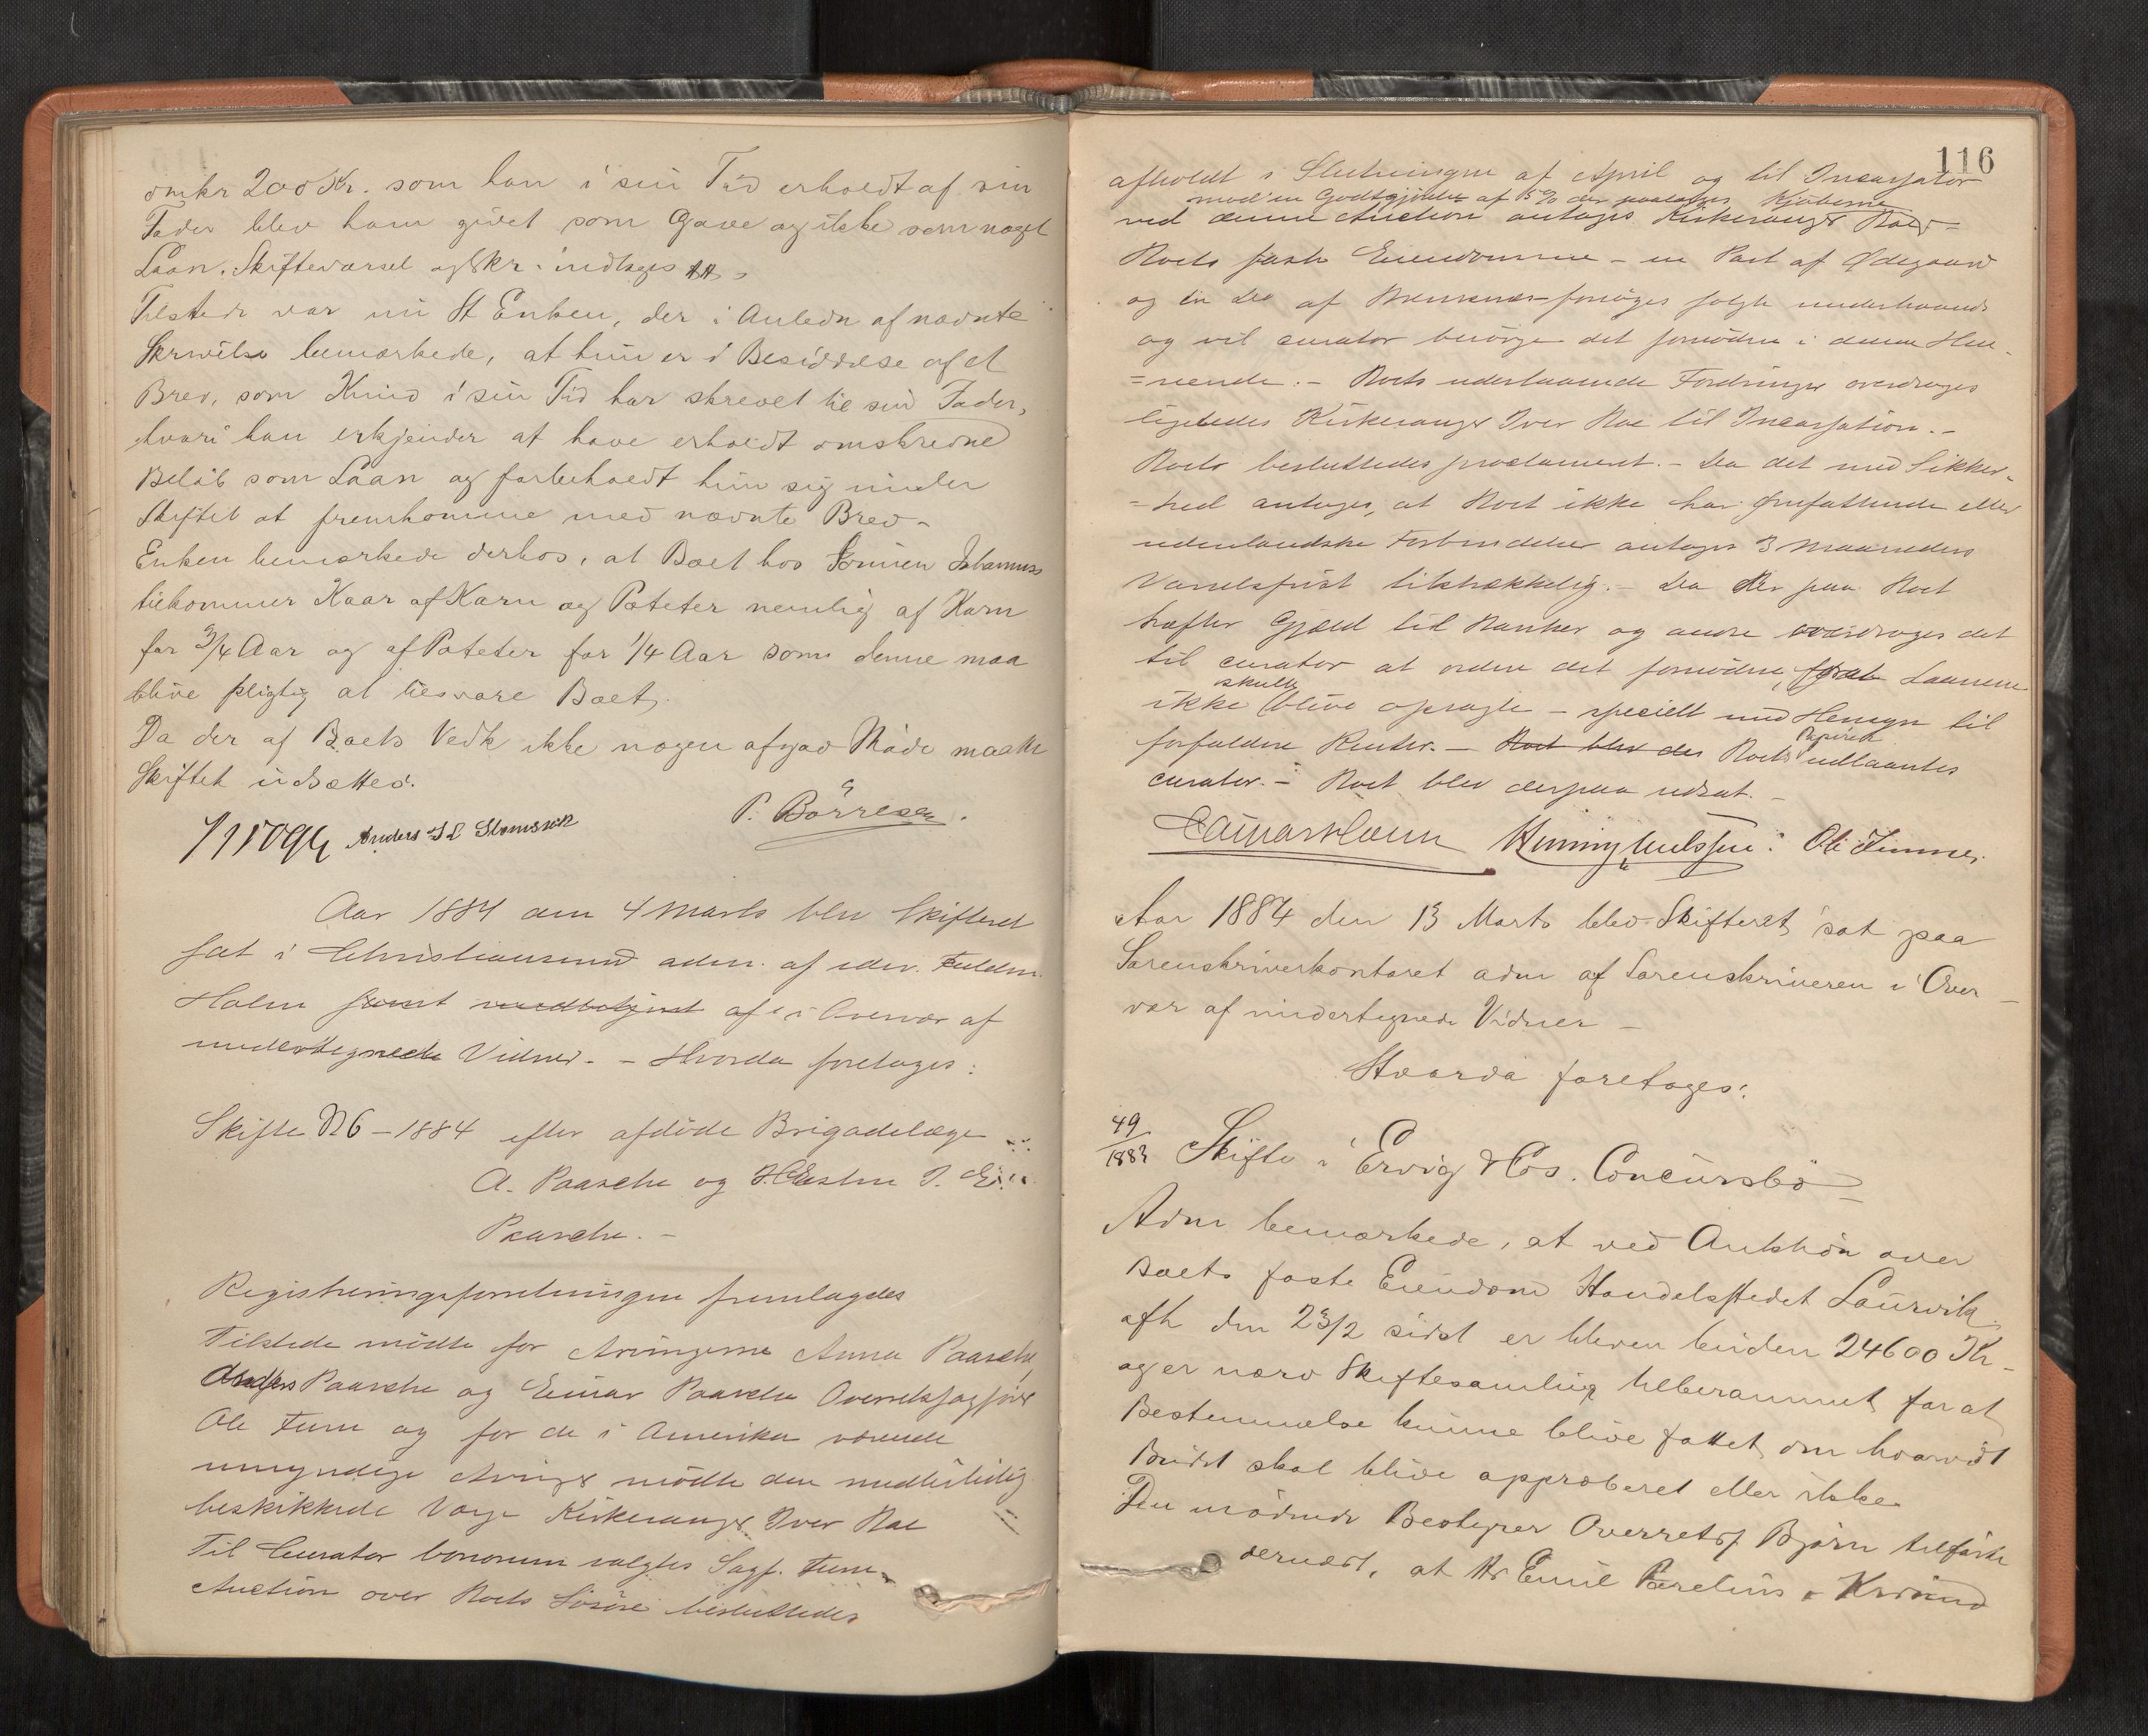 omkr 200 Kr. som han i sin Tid erholdt af sin
Fader blev ham givet som Gave og ikke som noget
Laan. Skiftevarsel og Skr. indtages
Tilstede var nu Enken, der i Anledn af nævnte
Skrivelse bemærkede, at hun er i Besiddelse af et
Brev, som Knud i sin Tid har skrevet til sin Fader,
hvori han erkjender at have erholdt omskrevne
Beløb som Laan og forbeholdt hun sig under
Skiftet at fremkomme med nævnte Brev -
Enken bemærkede derhos, at Boet hos Sønnen Johannes
tilkommer Kaar af Korn og Poteter nemlig af Korn
for 3/4 Aar og af Poteter for 1/4 Aar som denne maa
blive pligtig at tilsvare Boet.
Da der af Boets Vedk ikke nogen afgav Møde maatte
Skiftet udsættes.
Anders P. Börresen.
Aar 1884 den 4 Marts blev Skifteret
sat i Christiansund adm. af edsv. Fuldm.
Holm samt af i Overvær af
undertegnede Vidner. - Hvorda foretages:
Skifte N 6 - 1884 efter afdöde Brigadelæge
A. Paasche og Hustru
Paasche. -
Registreringsforretningen fremlagdes
Tilstede mödte for Arvingerne Anna Paasche,
Paasche og Einar Paasche Overretssagförer
Ole Furu og for de i Amerika værende
umyndige Arvinger mödte den midlertidig
beskikkede Værge Kirkesanger Iver Roe
Til Curator bonorum valgtes Sagf. Furu.
Auction over Boets Lösöre besluttedes
116
afholdt i Slutningen af April og til Incassator
mod en Godtgjörelse af 5% der paalægges Kjöberne
ved denne Auction antages Kirkesanger Roe -
Boets faste Eiendomme - en Part af Ødegaard
og en Del af - forsöges solgte underhaands
og vil curator besörge det fornödne i denne Hen-
=seende. - Boets udestaaende Fordringer overdrages
ligeledes Kirkesanger Iver Roe til Incassation. -
Boets besluttedes proclameret. - Da det med Sikker-
=hed antages, at Boet ikke har omfattende eller
udenlandske Forbindelser antages 3 Maaneders
Varselsfrist tilstrækkelig. - Da der paa Boet
hæfter Gjæld til Banker og andre overdroges det
til curator at ordne det fornödne, forat Laanene
skulle
ikke blive opsagte - specielt med Hensyn til
Papirer
forfaldne Renter. - Boet blev der Boets udlaantes
curator. - Boet blev derpaa udsat. -
Aar 1884 den 13 Marts blev Skifteret sat paa
Sorenskriverkontoret adm af Sorenskriveren i Over-
vær af undertegnede Vidner -
Hvorda foretages:
49/1883 Skifte i Ervig & Cos. Concursbo -
Adm bemærkede, at ved Auktion over
Boets faste Eiendom Handelsstedet Laurvik
afh den 23/2 sidst er bleven buden 24600 Kr -
og er nærv Skiftesamling beberammet for at
Bestemmelse kunne blive fattet om hvorvidt
Budet skal blive approberet eller ikke
Den mödende Bestyrer Overretss Björn tilförte
dernæst, at Hr Emil Parelius i Krsund